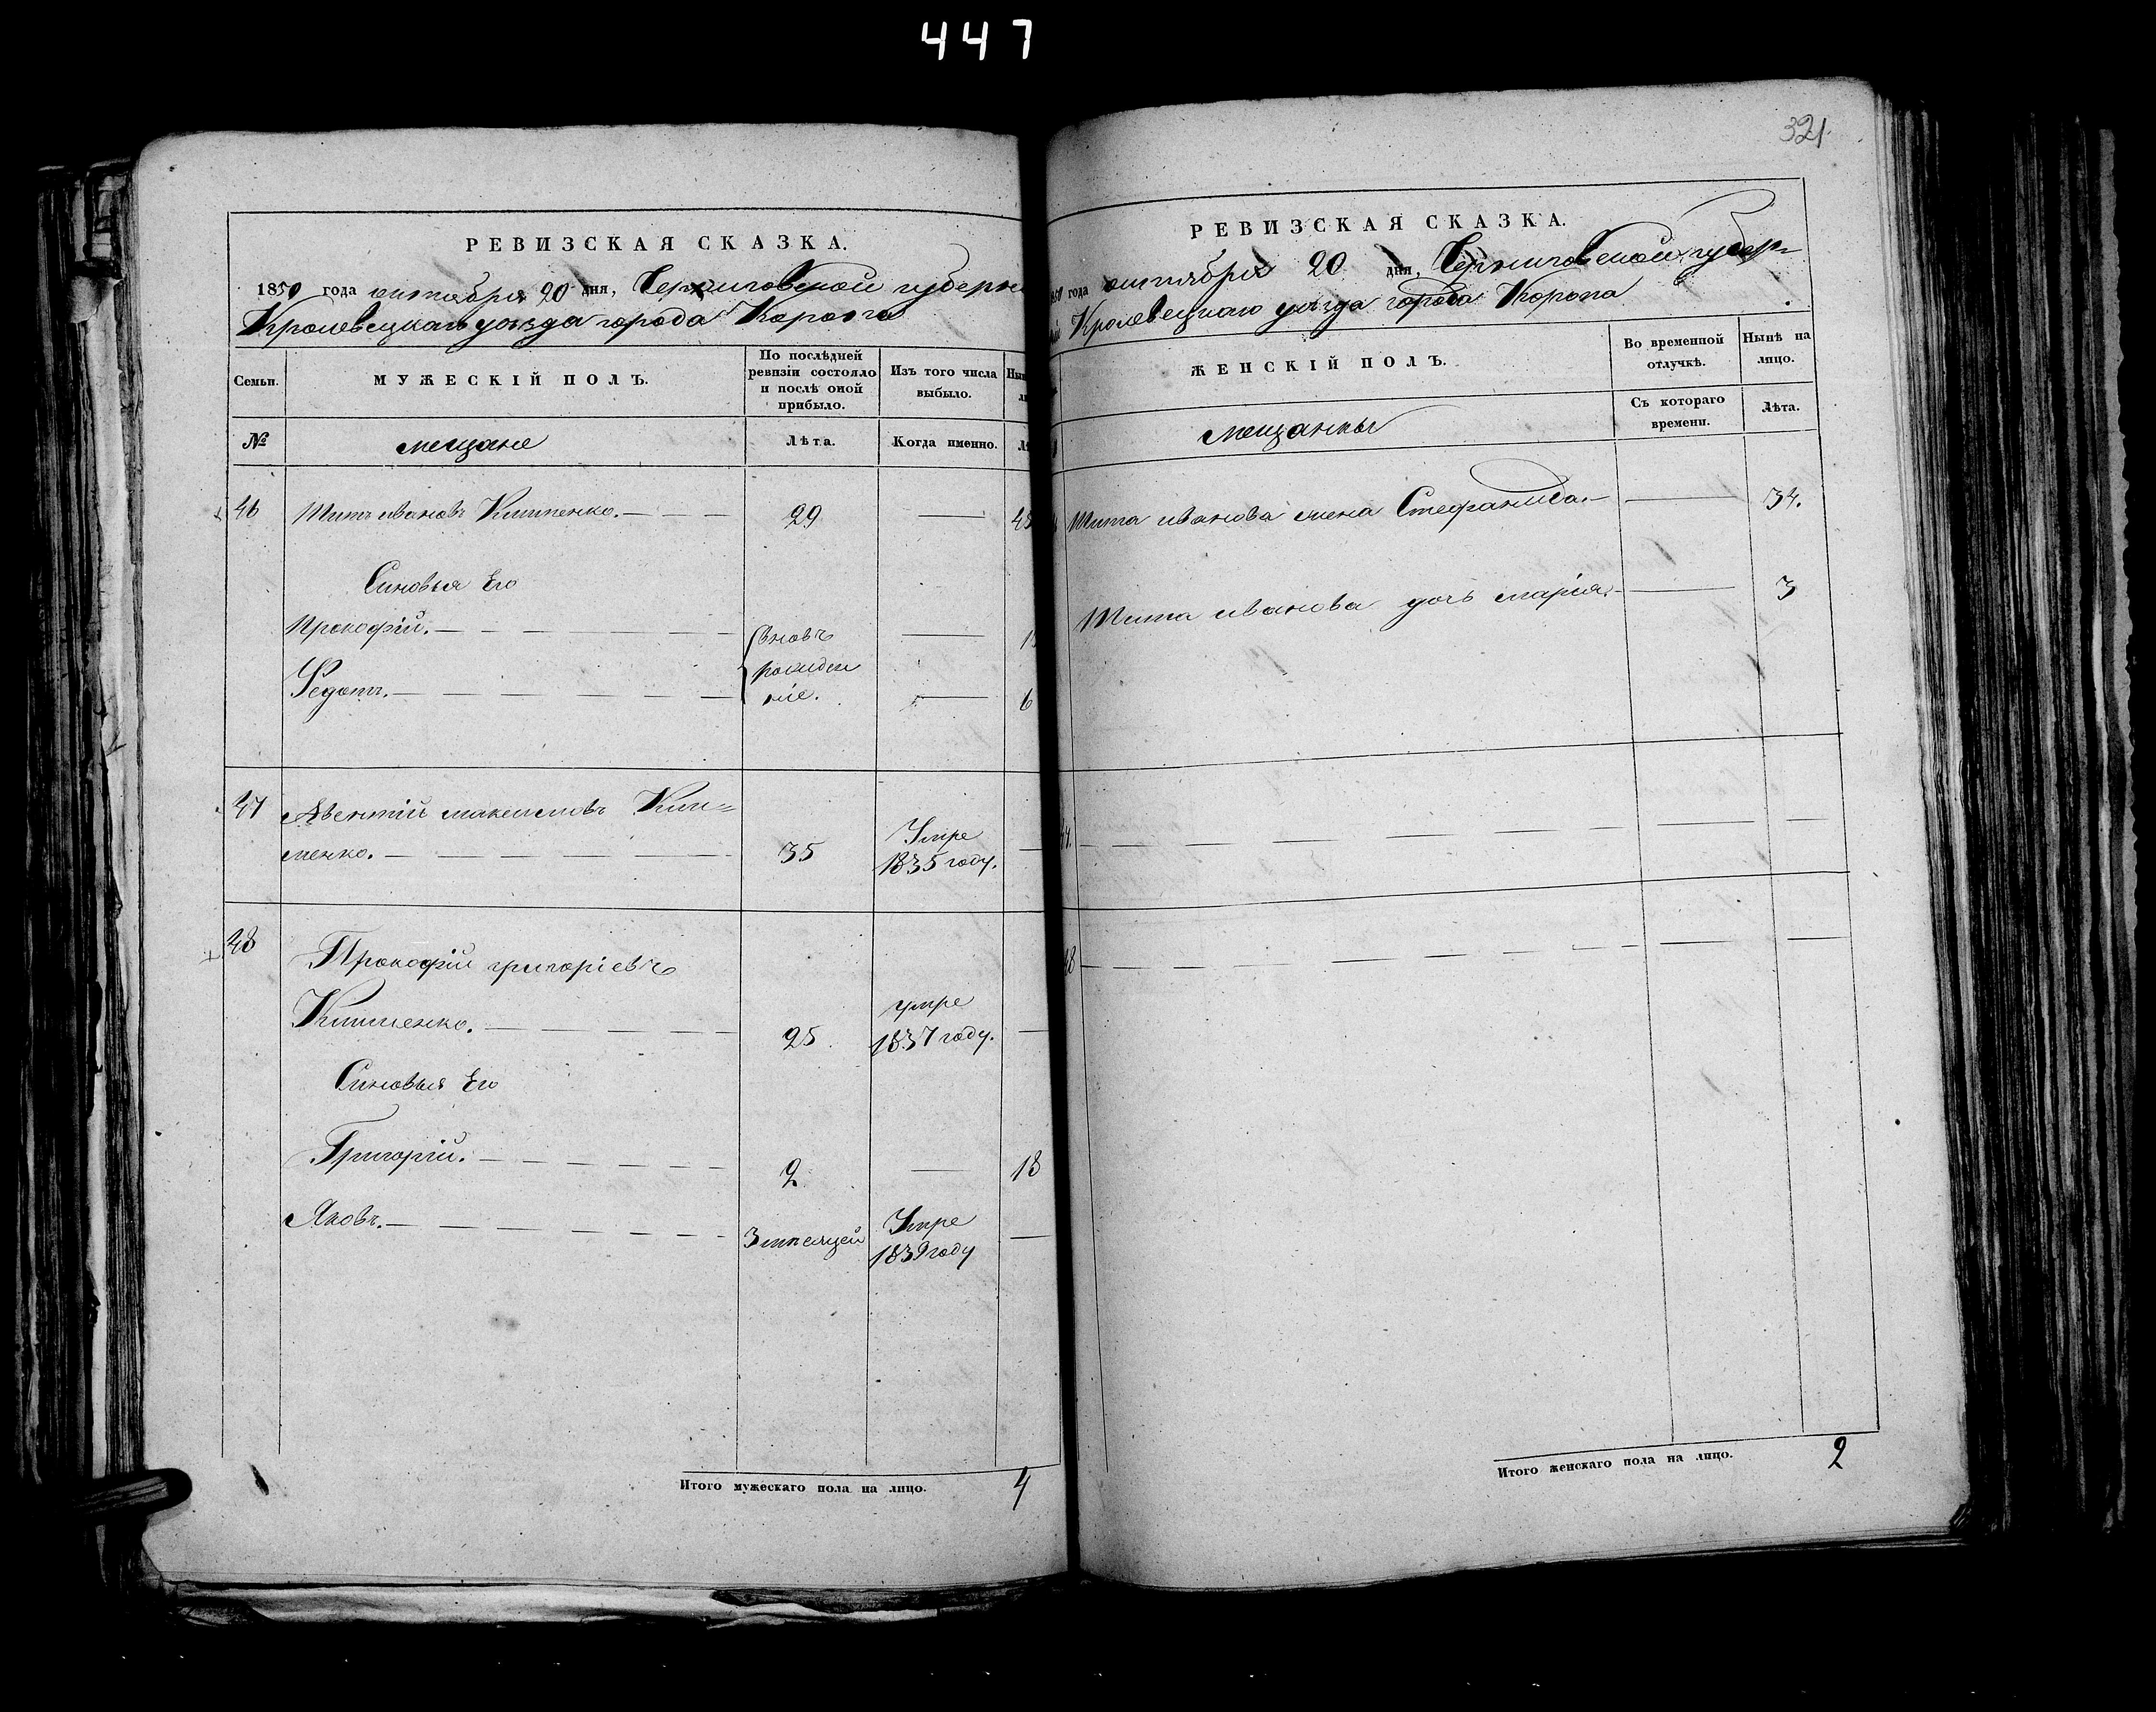 447
РЕВИЗСКАЯ СКАЗКА.
1850 года октября 20 дня, Черниговской губерн
Кролевецкаго уезда города Коропа
Семьи.
МУЖЕСКІЙ ПОЛЪ.
По послѣдней
ревизіи состояло
и послѣ оной
прибыло.
Изъ того числа
выбыло.
№
мещане
Лѣта.
Когда именно.
46
Титъ ивановъ
29
Синовья Его
Прокофій.
вновь
рожден
ніе.
Федотъ.
6
47
максимовъ
менко.
35
Умре
1835 году.
48
Прокофій григоріевъ
25
умре
1837 году.
Синовья Его
Григорій.
2
18
Яковъ.
3 месяцей
Умре
1839 году
Итого мужескаго пола на лицо.
4
321
РЕВИЗСКАЯ СКАЗКА.
года октября 20 дня, Черниговской губер-
Кролевецкаго уезда города Коропа
ЖЕНСКІЙ ПОЛЪ.
Во временной
отлучкѣ.
Нынѣ на
лицо.
мещанки
Съ котораго
времени.
Лѣта.
Тита иванова жена Стефанида.
34.
Тита иванова дочь марія.
3
Итого женскаго пола на лицо.
2